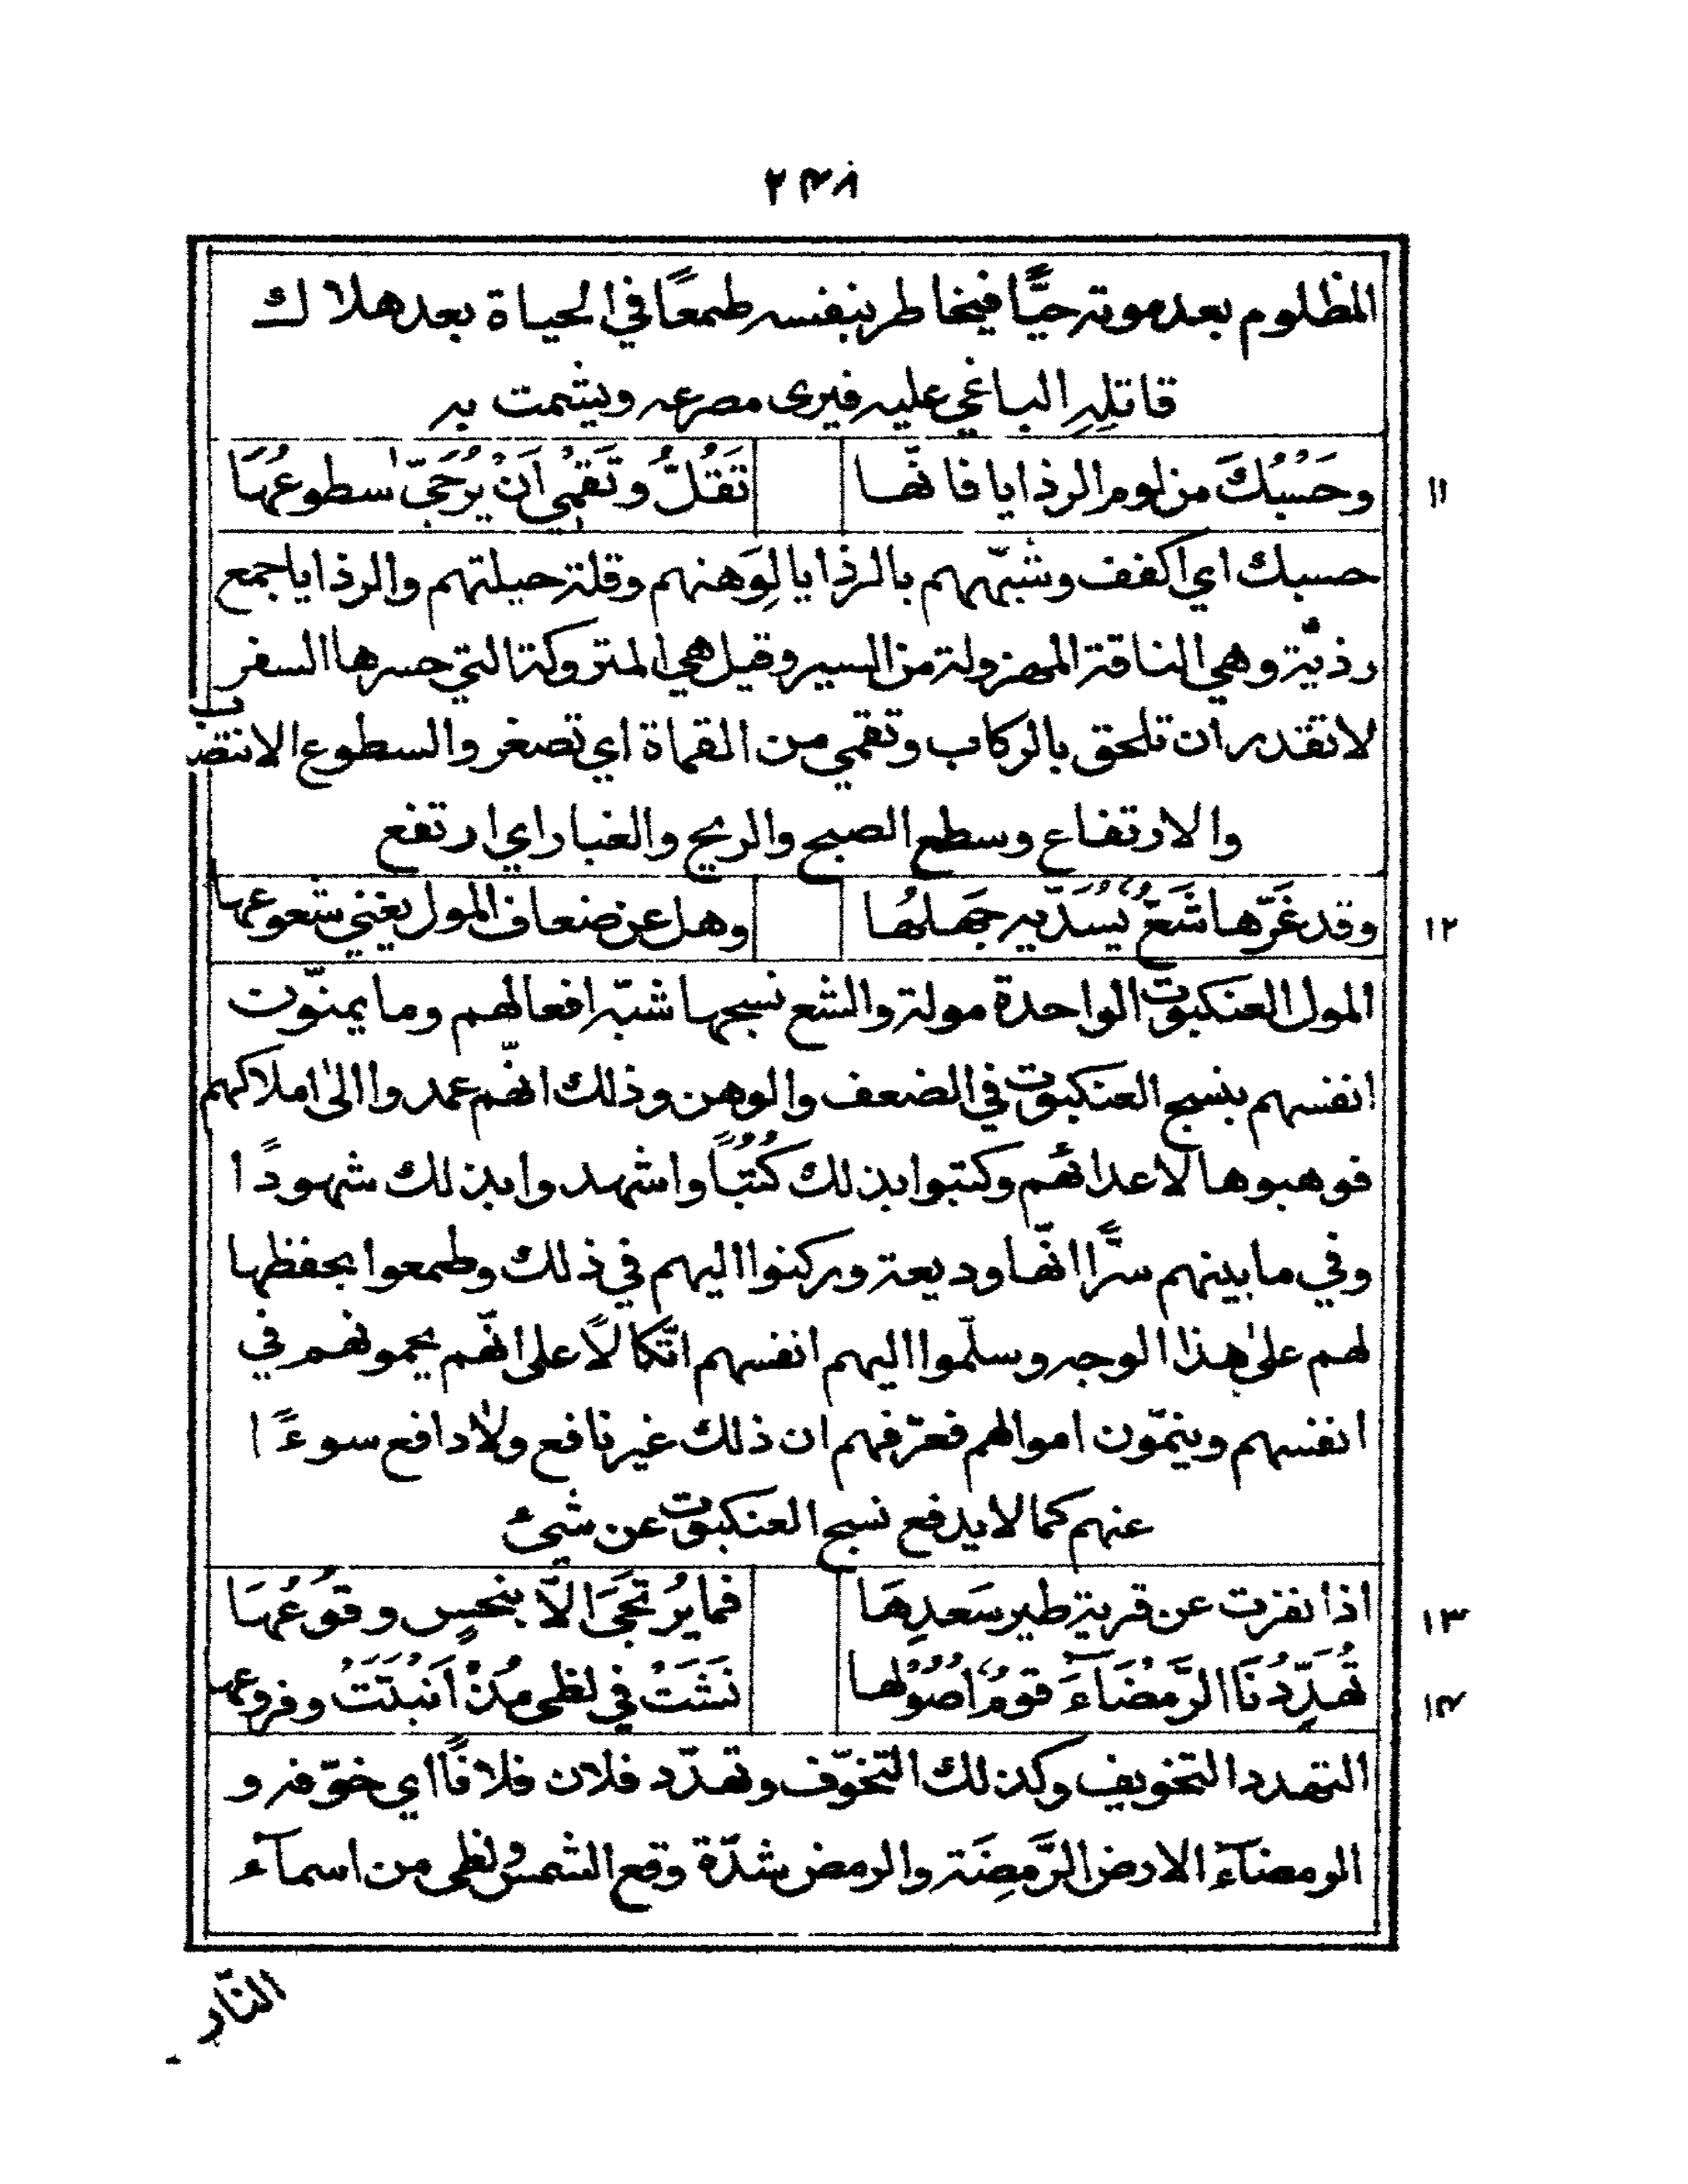 ٢٤٨
المظلوم بعد موته حيًّا فيخاطر بنفسه طمعًا في الحياة بعد هلاك
قاتلِهِ الباغي عليه فيرى مصرعه ويشمت به
١١ وحَسْبُكَ من لوم الرذايا فانّها تَقُلُّ وتَقْمِي اَنْ يُرَجّىٰ سطوعُهَا
حسبك اي اكفف وشبّههم بالرذايا لِوَهنهم وقلة حيلتهم والرذايا جمع
رذيّة وهي الناقة المهزولة من السير وقيل هي المتروكة التي حسرها السفر
لا تقدر ان تلحق بالركاب وتقمي من القماة اي تصغر والسطوع الانتصاب
والارتفاع وسطع الصبح والريح والغبار اي ارتفع
١٢ وقد غَرّها شَعٌّ يُسَدّيه جَهلُها وهل عن ضعاف المول يغني شعوعها
المول العنكبوت الواحدة مولة والشع نسجها شبّه افعالهم وما يمنّون
انفسهم بنسج العنكبوت في الضعف والوهن وذلك انّهم عمدوا الىٰ املاكهم
فوهبوها لاعدائهم وكتبوا بذلك كُتُبًا واشهدوا بذلك شهودًا
وفي ما بينهم سرًّا انّها وديعة وركنوا اليهم في ذلك وطمعوا بحفظها
لهم علىٰ هذا الوجه وسلّموا اليهم انفسهم اتّكالاً على انّهم يحمونهم في
انفسهم وينمّون اموالهم فعرّفهم ان ذلك غير نافع ولا دافع سوءًا
عنهم كما لا يدفع نسج العنكبوت عن شيء
١٣ اذا نفرت عن قرية طير سَعدِهَا فما يُرتَجَى الاّ بنحسٍ وقوعُهَا
١٤ تُهَدِّدُنَا الرَّمْضَآءَ قومٌ اُصُوْلُها نَشَتْ في لظى مُذْ اَنْبَتَتْ وفروعها
التهدد التخويف وكذلك التخوّف وتهدّد فلان فلانًا اي خوّفه و
الرمضآء الارض الرَّمِضَة والرمض شدّة وقع الشمس ولظى من اسمآء
النّار